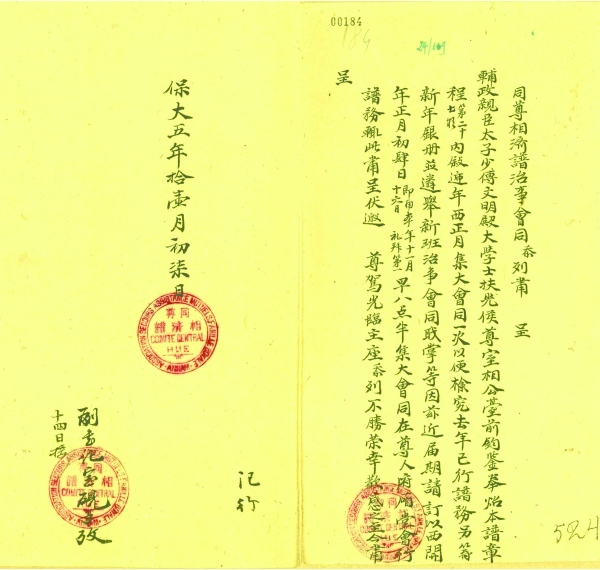 00184
184
同尊相濟譜治事會同忝列肅 呈
輔政親臣太子少傅文明殿大學士扶光侯尊室相公臺前鈞鑒奉炤本譜章
程第二十內敘遞年西正月集大會同一次以便檢究去年已行譜務另籌
新年銀册並遴舉新班治事會同戝掌等因茲近届期請訂以西開
年正月初肆日即由本年十一月十六日礼拜第一早八点半集大會同在尊人府
譜務輒此肅呈伏邀 尊駕光臨主座忝列不勝榮幸
呈
524
保大五年拾壹月初柒日
ASSOCIATION DE SECOURS ASSISTANCE MUTUELLE
同尊
相濟譜
COMITE CENTRAL
HUE
記行
十四日